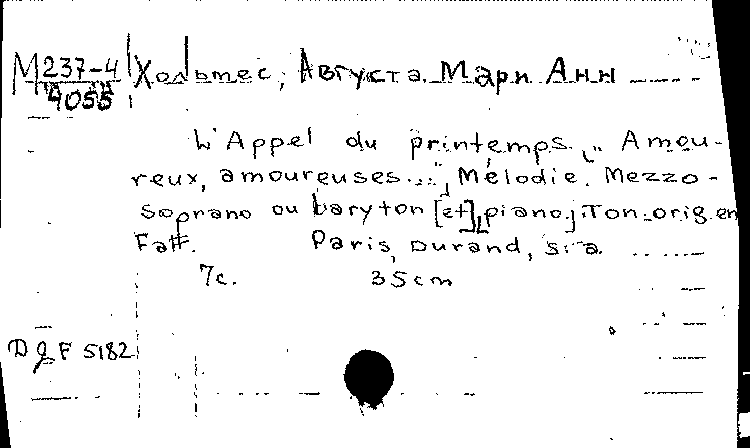 М 237-4 Хольмес, Августа Мари Анн
4055
L'Appel du printemps. „Amou-
reux, amoureuses...", Mélodie. Mezzo-
soprano ou baryton [et] piano. Ton. orig. en
Fa#. Paris, Durand, s. a.
7c. 35cm
D & F 5182